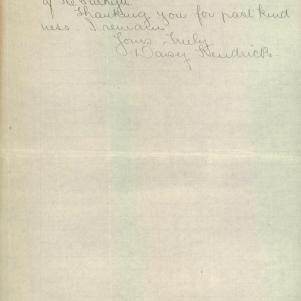 of
Thanking you for past kind
ness I remain
Yours Truly
Daisy Hendricks